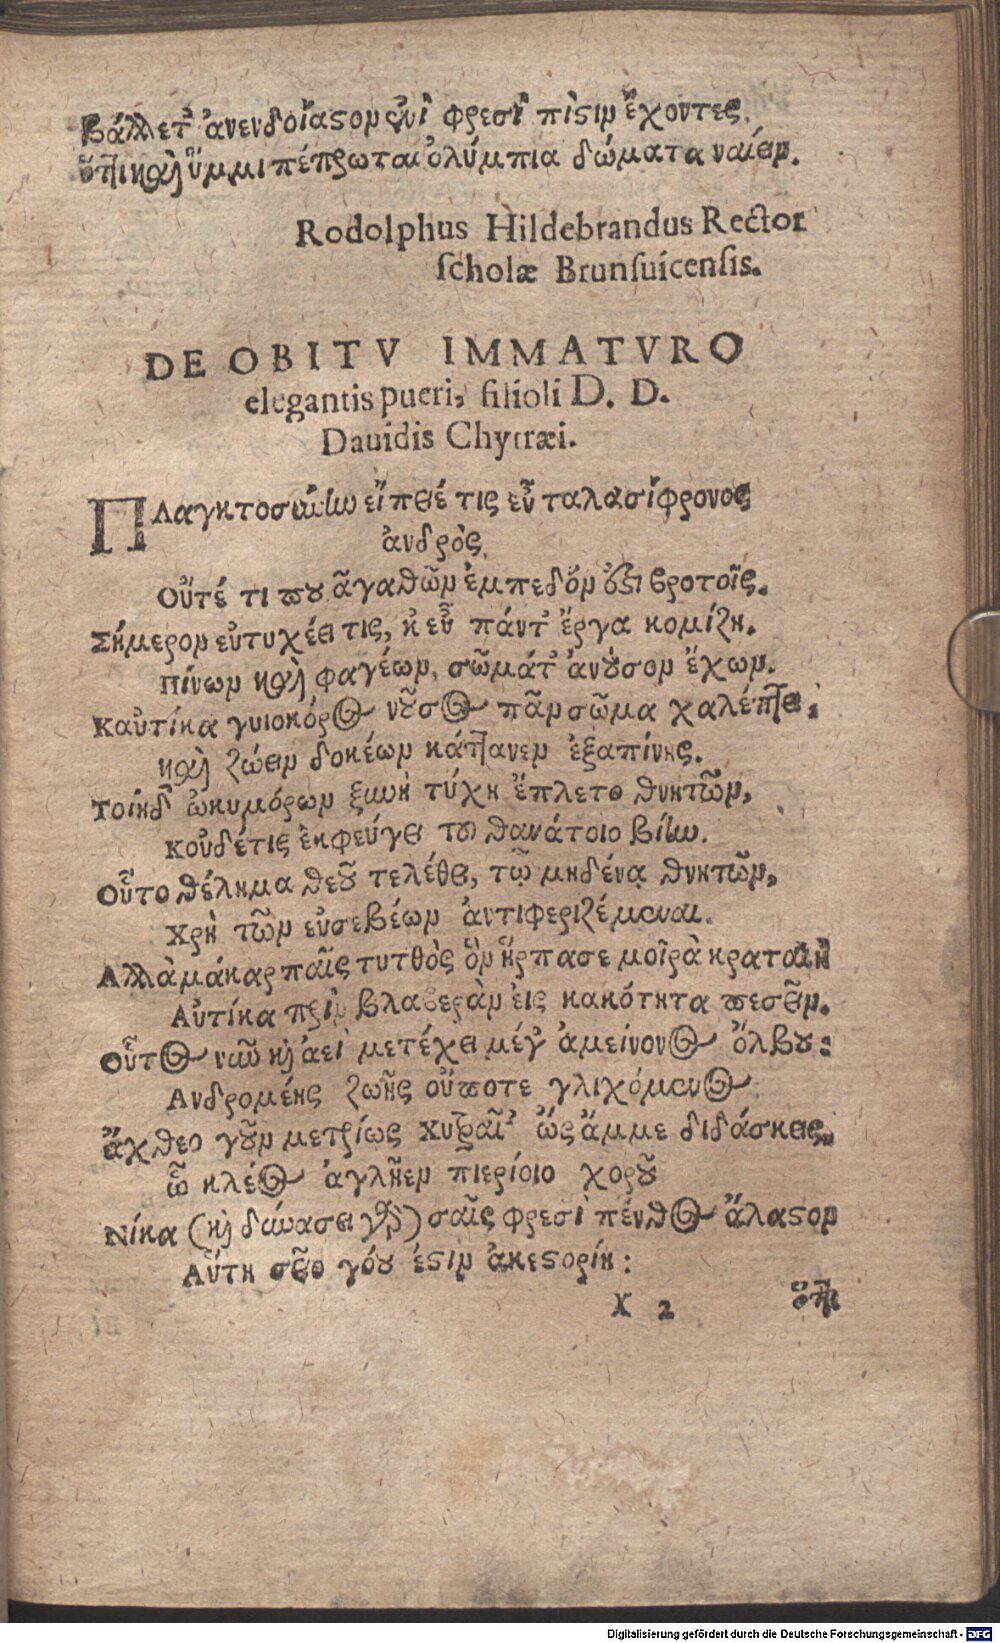 Βάλλετ᾽ ἀνενδοίαστον ἐνὶ φρεσὶ πίστιν ἔχοντες,
ὅττι καὶ ὔμμι πέπρωται ὀλύμπια δώματα ναίειν.
Rodolphus Hildebrandus Rector
scholæ Brunsuicensis.
DE OBITV IMMATVRO
elegantis pueri, filioli D. D.
Dauidis Chytræi.
ΠΛαγκτοσύνην εἴπεθέ τις εὖ ταλασίφρονος
ἀνδρὸς,
Οὔτέ τι που ἀγαθῶν ἐμπεδόν ἐστι βροτοῖς.
Σήμερον εὐτυχέει τις, κ᾽ εὖ πάντ᾽ ἔργα κομίζη.
Πίνων καὶ φαγέων, σῶμάτ᾽ ἀνούσον ἔχων.
Καὐτίκα γυιοκόρος νοῦσος πᾶν σῶμα χαλέπτει:
καὶ ζώειν δοκέων κάτθανεν ἐξαπίνης.
Τοίηδ᾽ ὠκυμόρων ξυνὴ τύχη ἔπλετο θνητῶν,
Κοὐδέτις ἐκφεύγει τοῦ θανάτοιο βίην.
Οὗτο θέλημα θεοῦ τελέθει, τῷ μηδένα θνητῶν,
Χρὴ τῶν εὐσεβέων ἀντιφεριζέμεναι.
Αλλὰ μάκαρ παῖς τυτθὸς ὃν ἥρπασε μοῖρὰ κραταιὴ
Αὐτίκα πρὶν βλαβερὰν εἰς κακότητα πεσεῖν.
Οὗτος νῦν καὶ ἀεὶ μετέχει μέγ᾽ ἀμείνονος ὄλβου:
Ανδρομένης ζωῆς οὔποτε γλιχόμενος
ἄχθεο γοῦν μετρίως Χυτραῖ᾽ ὥς ἄμμε διδάσκεις,
ὦ κλέος ἀγλῆεν πιερίοιο χοροῦ
Νίκα (καὶ δύνασαι γὰρ) σαῖς φρεσὶ πένθος ἄλαστον
Αὕτη σεῖο γόου ἐστὶν ἀκεστορίη:
X 2 ὅττι
Digitalisierung gefördert durch die Deutsche Forschungsgemeinschaft - DFG